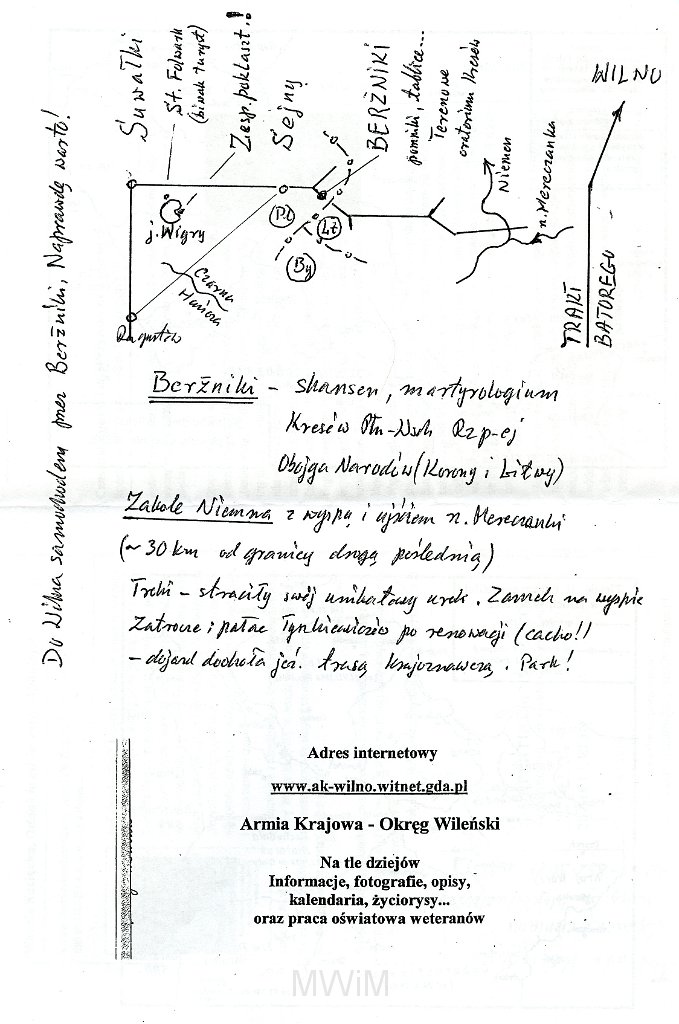 Do Wilna samochodem przez Berżniki, Naprawdę warto!
Suwałki
St. Folwark
(biwak turyst)
Zesp. poklaszt.!
Sejny
BERŻNIKI
pomniki, tablice...
Terenowe
oratorium Kresów
Niemen
n. Mereczanka
WILNO
TRAKT
BATOREGO
j. Wigry
PL
LT
By
Czarna
Hańcza
Augustów
Berżniki - skansen, martyrologium
Kresów Płn-Wsch Rzp-ej
Obojga Narodów (Korony i Litwy)
Zakole Niemna z wyspą i ujściem n. Mereczanki
(~30 km od granicy drogą poślednią)
Troki - straciły swój unikatowy urok. Zamek na wyspie
Zatrocze i pałac Tyszkiewiczów po renowacji (cacko!!)
- dojazd dookoła jez. trasą krajoznawczą. Park!
Adres internetowy
www.ak-wilno.witnet.gda.pl
Armia Krajowa - Okręg Wileński
Na tle dziejów
Informacje, fotografie, opisy,
kalendaria, życiorysy...
oraz praca oświatowa weteranów
MWiM